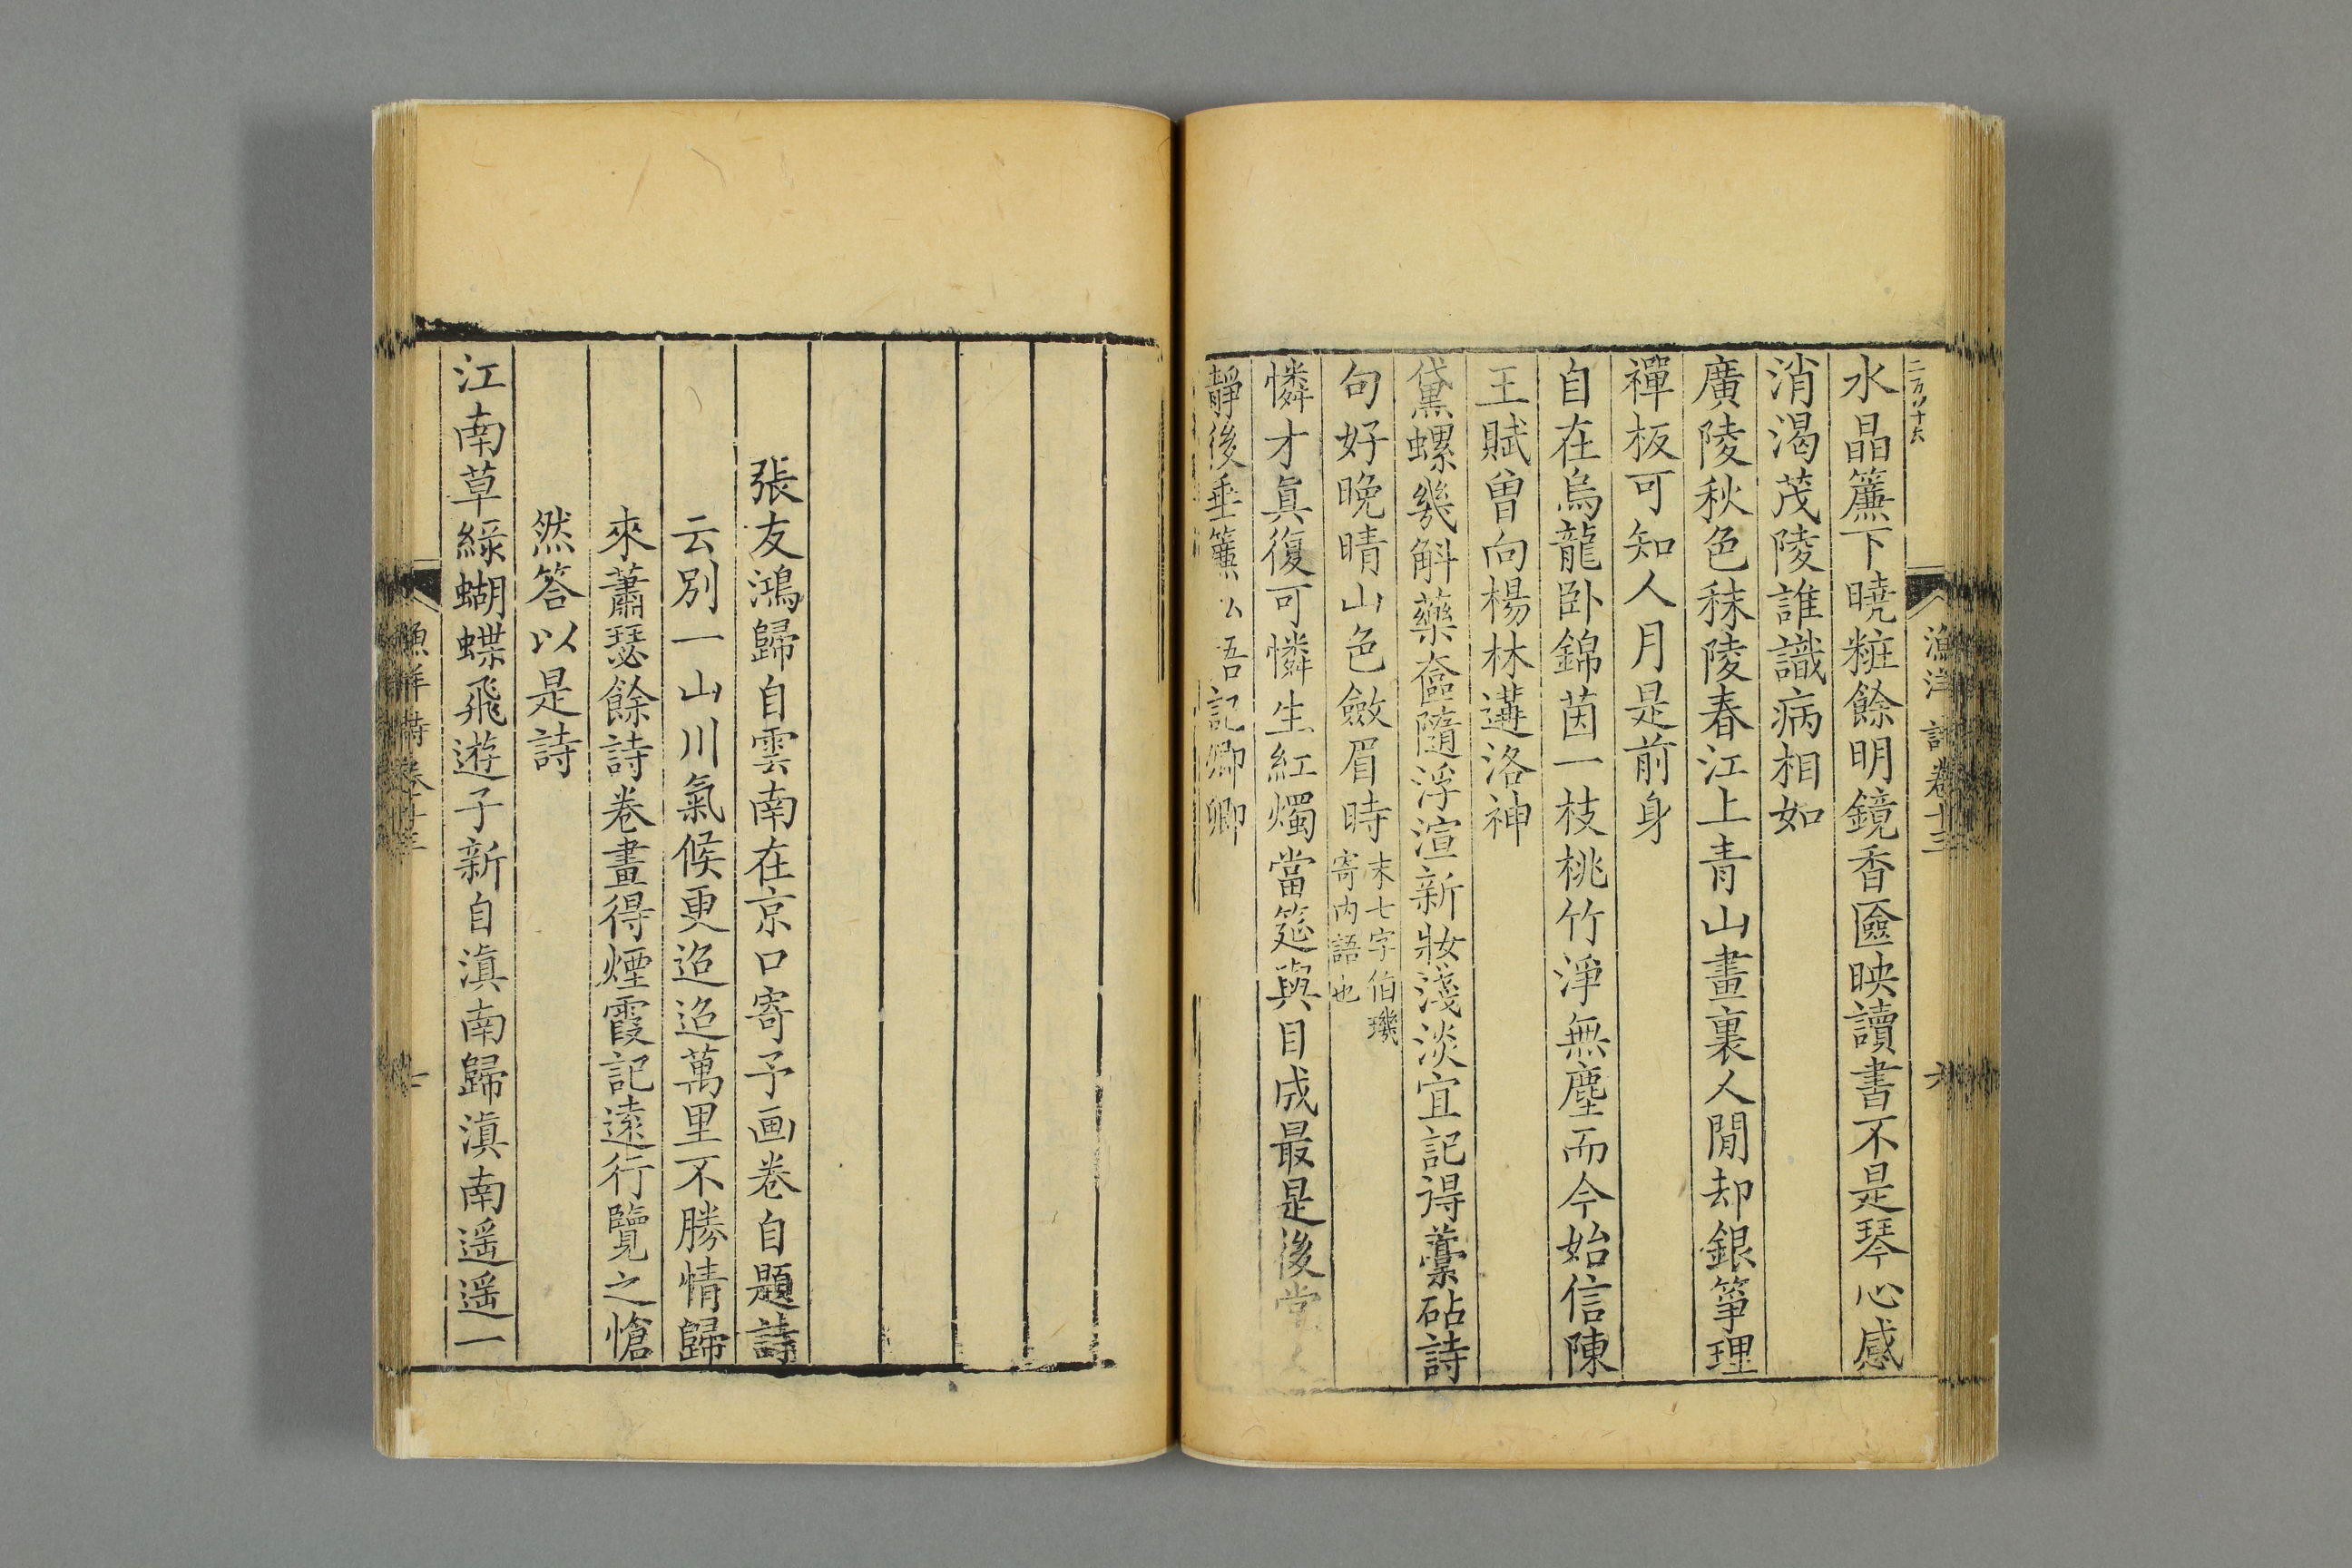 漁洋詩卷十三
水晶簾下曉粧餘明鏡香匳映讀書不是琴心感
消渴茂陵誰識病相如
廣陵秋色秣陵春江上青山畫裏人閒却銀箏理
禪板可知人月是前身
自在烏龍卧錦茵一枝桃竹淨無塵而今始信陳
王賦曾向楊林遘洛神
黛螺幾斛藥奩隨浮渲新妝淺淡宜記得藁砧詩
句好晚晴山色斂眉時末七字伯璣
寄内語也
憐才眞復可憐生紅燭當筵與目成最是後堂
靜後垂簾 吾記卿卿
張友鴻歸自雲南在京口寄予画卷自題詩
云別一山川氣候更迢迢萬里不勝情歸
來蕭瑟餘詩卷畫得煙霞記遠行覽之愴
然答以是詩
江南草綠蝴蝶飛遊子新自滇南歸滇南遥遥一